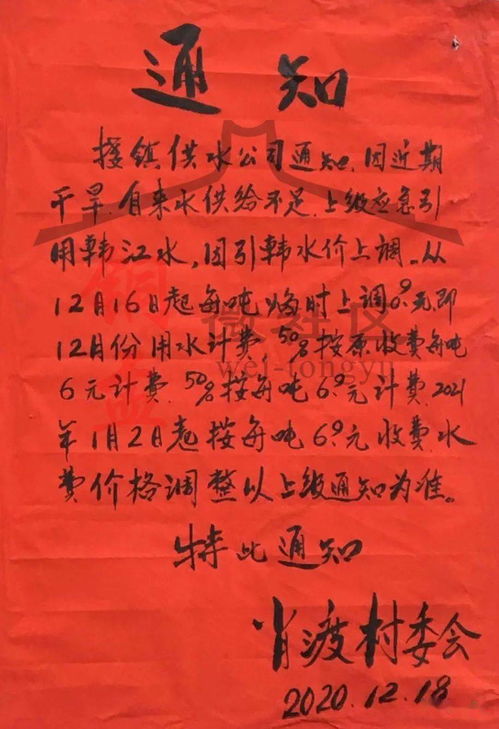 通知
接镇供水公司通知,因近期
干旱,自来水供给不足,上级应急引
用韩江水,因引韩水价上调。从
12月16日起每吨临时上调6.9元即
12月份用水计费,50%按原收费每吨
6元计费,50%按每吨6.9元计费,2021
年1月2日起按每吨6.9元收费,水
费价格调整以上级通知为准。
特此通知
肖渡村委会
2020.12.18